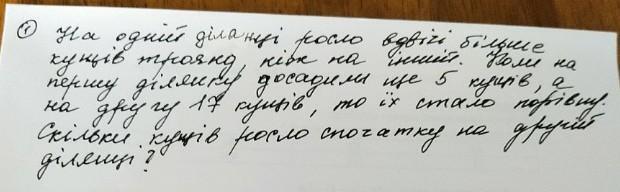 ① На одній ділянці росло вдвічі більше
кущів троянд, ніж на іншій. Коли на
першу ділянку досадили ще 5 кущів, а
на другу 17 кущів, то їх стало порівну.
Скільки кущів росло спочатку на другій
ділянці?